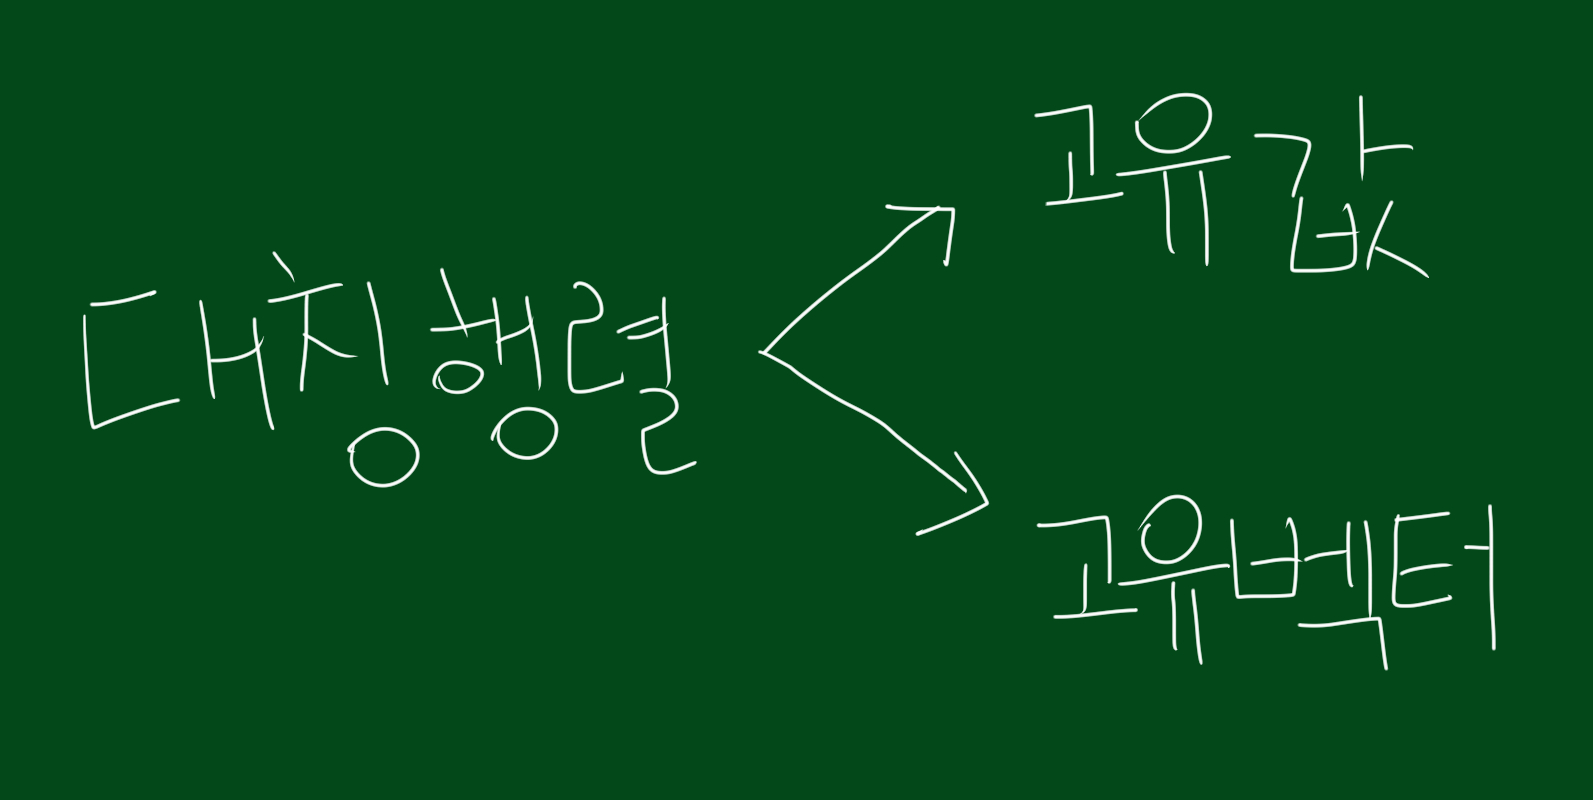 대칭행렬
고유값
고유벡터